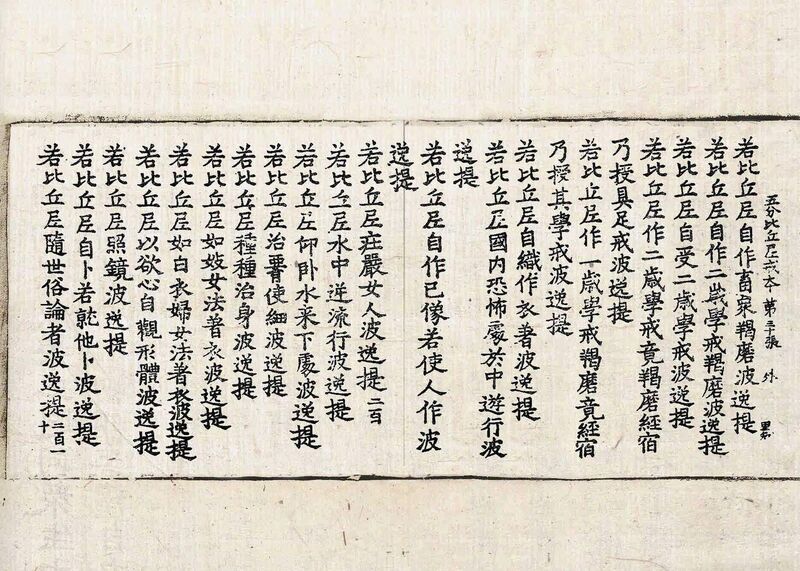 五分比丘尼戒本 第三張 外
若比丘尼自作畜衆羯磨波逸提
若比丘尼自作二歲學戒羯磨波逸提
若比丘尼自受二歲學戒波逸提
若比丘尼作二歲學戒竟羯磨經宿
乃授具足戒波逸提
若比丘尼作一歲學戒羯磨竟經宿
乃授其學戒波逸提
若比丘尼自織作衣著波逸提
若比丘尼國內恐怖處於中遊行波
逸提
若比丘尼自作已像若使人作波
逸提
若比丘尼莊嚴女人波逸提 二百
若比丘尼水中逆流行波逸提
若比丘尼仰卧水來下處波逸提
若比丘尼治𦝫使細波逸提
若比丘尼種種治身波逸提
若比丘尼如妓女法著衣波逸提
若比丘尼如白衣婦女法著衣波逸提
若比丘尼以欲心自觀形體波逸提
若比丘尼照鏡波逸提
若比丘尼自卜若就他卜波逸提
若比丘尼隨世俗論者波逸提 二百一十